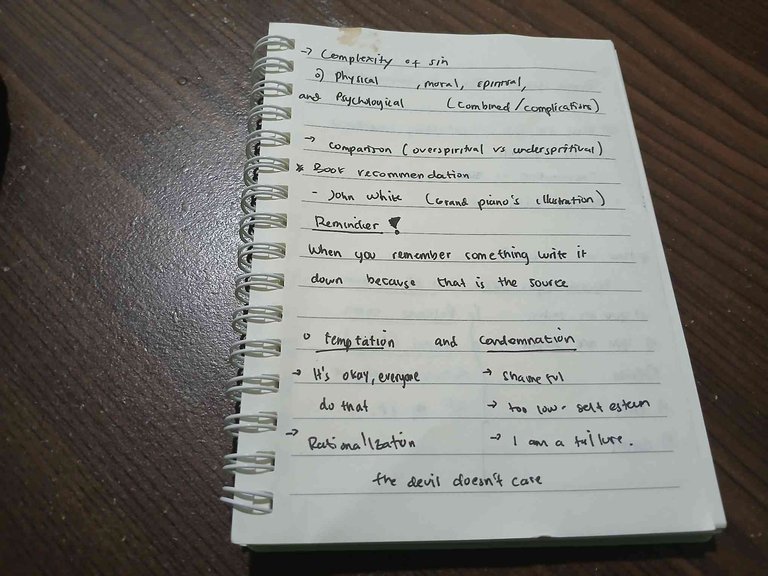 → Complexity of sin
o) Physical , moral, spiritual,
and Psychological (combined/complications)
→ comparison (overspiritual vs underspiritual)
* Book recommendation
- John White (Grand piano's illustration)
Reminder !
When you remember something write it
down because that is the source
o temptation and Condemnation
→ It's okay, everyone → shameful
do that → too low - self esteem
→ Rationalization → I am a failure.
the devil doesn't care